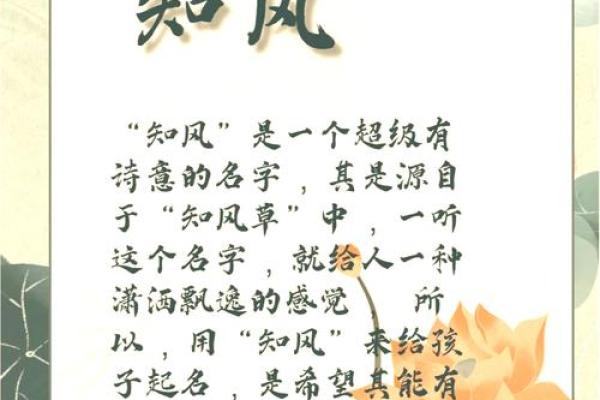 知风
“知风”是一个超级有
诗意的名字，其是源自
于“知风草”中，一听
这个名字，就给人一种
潇洒飘逸的感觉， 所
以，用“知风”来给孩
子起名，是希望其能有